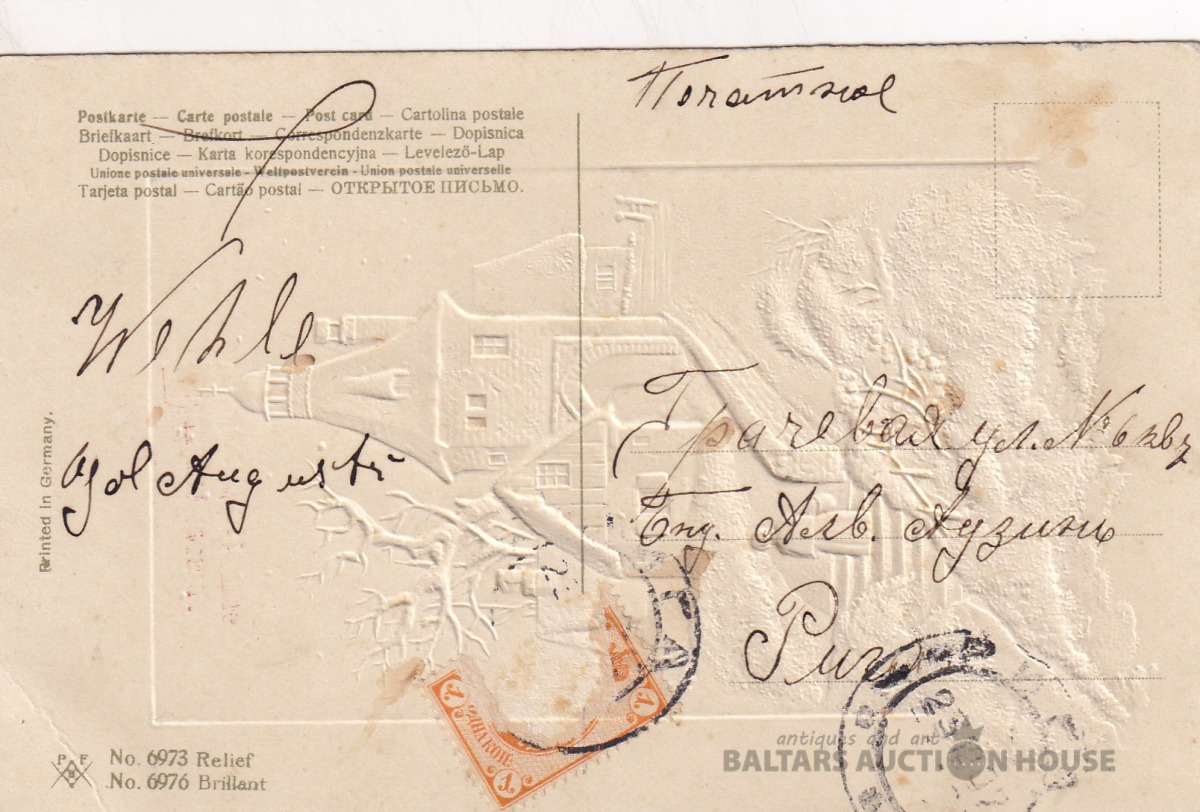 Postkarte — Carte postale — Post card — Cartolina postale
Briefkaart — Brefkort — Correspondenzkarte — Dopisnica
Dopisnice — Karta korespondencyjna — Levelező-Lap
Unione postale universale - Weltpostverein - Union postale universelle
Tarjeta postal — Cartão postal — ОТКРЫТОЕ ПИСЬМО.
Wehle
August
Printed in Germany.
Грачевая ул. № 6 кв 7
Алв. Аузинь
Рига
P F
B
No. 6973 Relief
No. 6976 Brillant
1
1
1
КОП
23
antiques and art
BALTARS AUCTION HOUSE